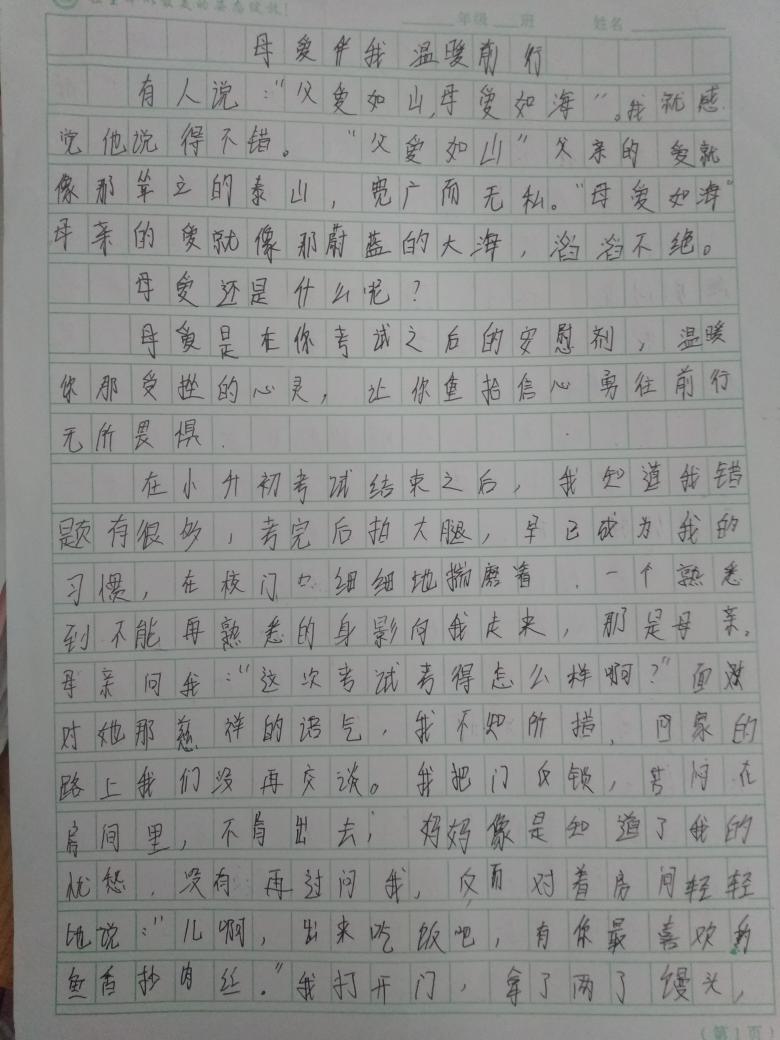 在童年以最美的姿态绽放!
年级 班 姓名
母爱伴我温暖前行
有人说:"父爱如山,母爱如海"。我就感
觉他说得不错。"父爱如山"父亲的爱就
像那耸立的泰山,宽广而无私。"母爱如海"
母亲的爱就像那蔚蓝的大海,滔滔不绝。
母爱还是什么呢?
母爱是在你考试之后的安慰剂,温暖
你那受挫的心灵,让你重拾信心勇往前行
无所畏惧.
在小升初考试结束之后,我知道我错
题有很多,考完后拍大腿,早已成为我的
习惯,在校门口细细地揣磨着.一个熟悉
到不能再熟悉的身影向我走来,那是母亲。
母亲问我:"这次考试考得怎么样啊?"面
对她那慈祥的语气,我不知所措,回家的
路上我们没再交谈。我把门反锁,苦闷在
房间里,不肯出去;妈妈像是知道了我的
忧愁.没有再过问我,反而对着房间轻轻
地说:"儿啊,出来吃饭吧,有你最喜欢的
鱼香抄肉丝."我打开门,拿了两了馒头,
(第1页)